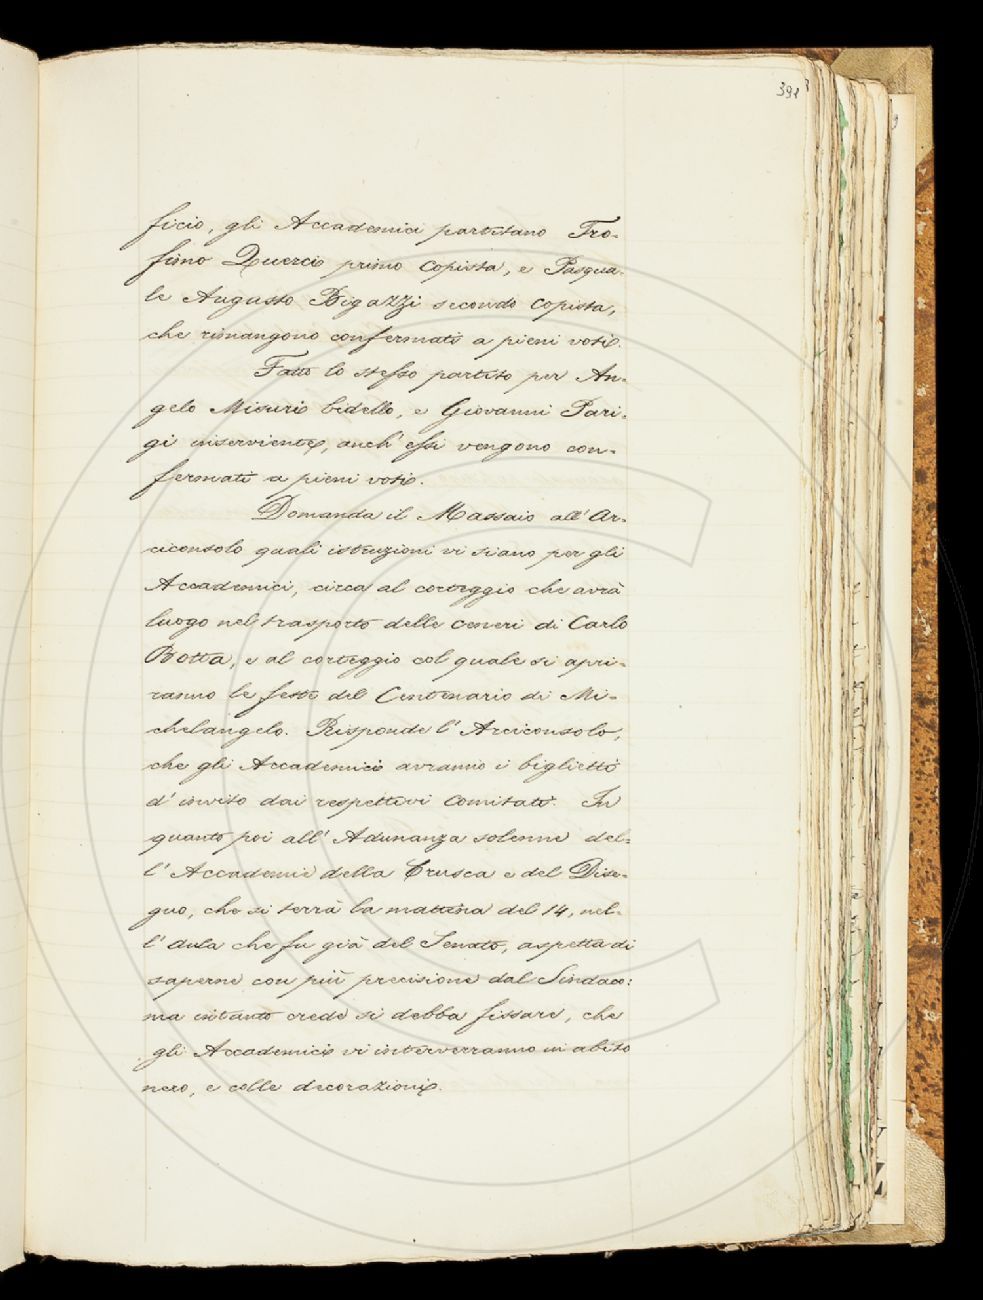 391
ficio, gli Accademici partitano Tro-
fimo Querci primo copista, e Pasqua-
le Augusto Bigazzi secondo copista,
che rimangono confermati a pieni voti.
Fatto lo stesso partito per An-
gelo Misuri bidello, e Giovanni Pari-
gi inserviente, anch' essi vengono con-
fermati a pieni voti.
Domanda il Massaio all' Ar-
ciconsolo quali istruzioni vi siano per gli
Accademici, circa al corteggio che avrà
luogo nel trasporto delle ceneri di Carlo
Botta, e al corteggio col quale si apri-
ranno le feste del Centenario di Mi-
chelangelo. Risponde l' Arciconsolo,
che gli Accademici avranno i biglietti
d' invito dai respettivi Comitati. In
quanto poi all' Adunanza solenne del-
l' Accademie della Crusca e del Dise-
gno, che si terrà la mattina del 14, nel-
l' aula che fu già del Senato, aspetta di
saperne con più precisione dal Sindaco:
ma intanto crede si debba fissare, che
gli Accademici vi interverranno in abito
nero, e colle decorazioni.